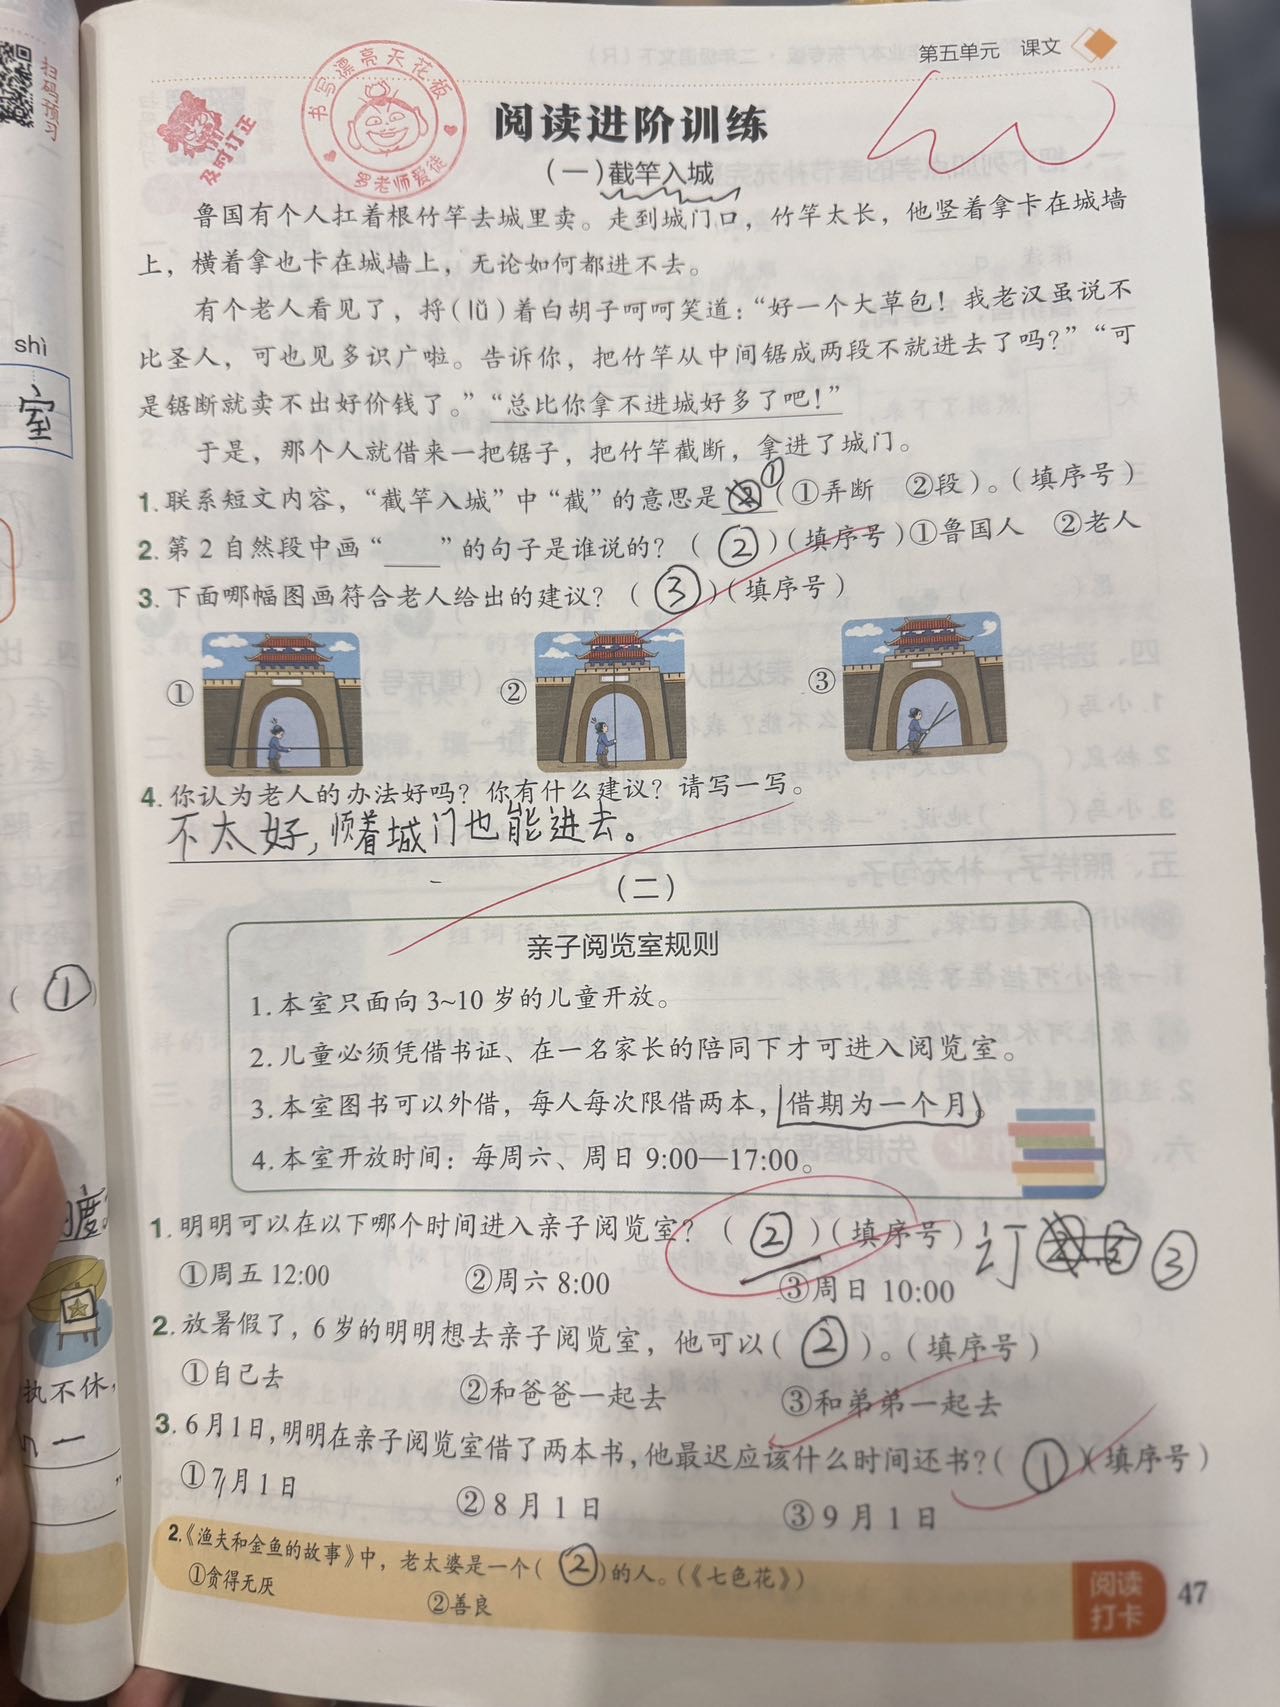 扫码预习
shì
室
(①)
执不休，
第五单元 课文
书写漂亮天花板
罗老师爱徒
及时订正
阅读进阶训练
(一)截竿入城
鲁国有个人扛着根竹竿去城里卖。走到城门口，竹竿太长，他竖着拿卡在城墙
上，横着拿也卡在城墙上，无论如何都进不去。
有个老人看见了，捋(lǚ)着白胡子呵呵笑道：“好一个大草包！我老汉虽说不
比圣人，可也见多识广啦。告诉你，把竹竿从中间锯成两段不就进去了吗？”“可
是锯断就卖不出好价钱了。”“总比你拿不进城好多了吧！”
于是，那个人就借来一把锯子，把竹竿截断，拿进了城门。
1.联系短文内容，“截竿入城”中“截”的意思是①(①弄断 ②段)。(填序号)
2.第2自然段中画“___”的句子是谁说的？(②)(填序号)①鲁国人 ②老人
3.下面哪幅图画符合老人给出的建议？(③)(填序号)
① ② ③
4.你认为老人的办法好吗？你有什么建议？请写一写。
不太好，顺着城门也能进去。
(二)
亲子阅览室规则
1.本室只面向3~10岁的儿童开放。
2.儿童必须凭借书证、在一名家长的陪同下才可进入阅览室。
3.本室图书可以外借，每人每次限借两本，借期为一个月。
4.本室开放时间：每周六、周日9:00—17:00。
1.明明可以在以下哪个时间进入亲子阅览室？(②)(填序号) 订 ③
①周五12:00 ②周六8:00 ③周日10:00
2.放暑假了，6岁的明明想去亲子阅览室，他可以(②)。(填序号)
①自己去 ②和爸爸一起去 ③和弟弟一起去
3.6月1日，明明在亲子阅览室借了两本书，他最迟应该什么时间还书？(①)(填序号)
①7月1日 ②8月1日 ③9月1日
2.《渔夫和金鱼的故事》中，老太婆是一个(②)的人。(《七色花》)
①贪得无厌 ②善良
阅读
打卡
47